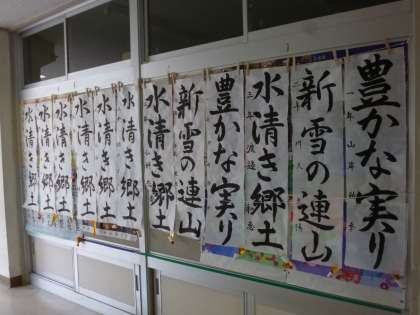 豊かな実り
一年
新雪の連山
水清き郷土
三年
豊かな実り
新雪の連山
水清き郷土
水清き郷土
水清き郷土
水清き郷土
水清き郷土
水清き郷土
水清き郷土